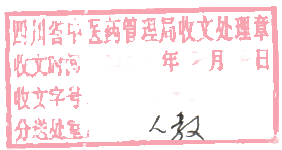 四川省中医药管理局收文处理章
收文时间 年 月 日
收文字号
分送处室 人教